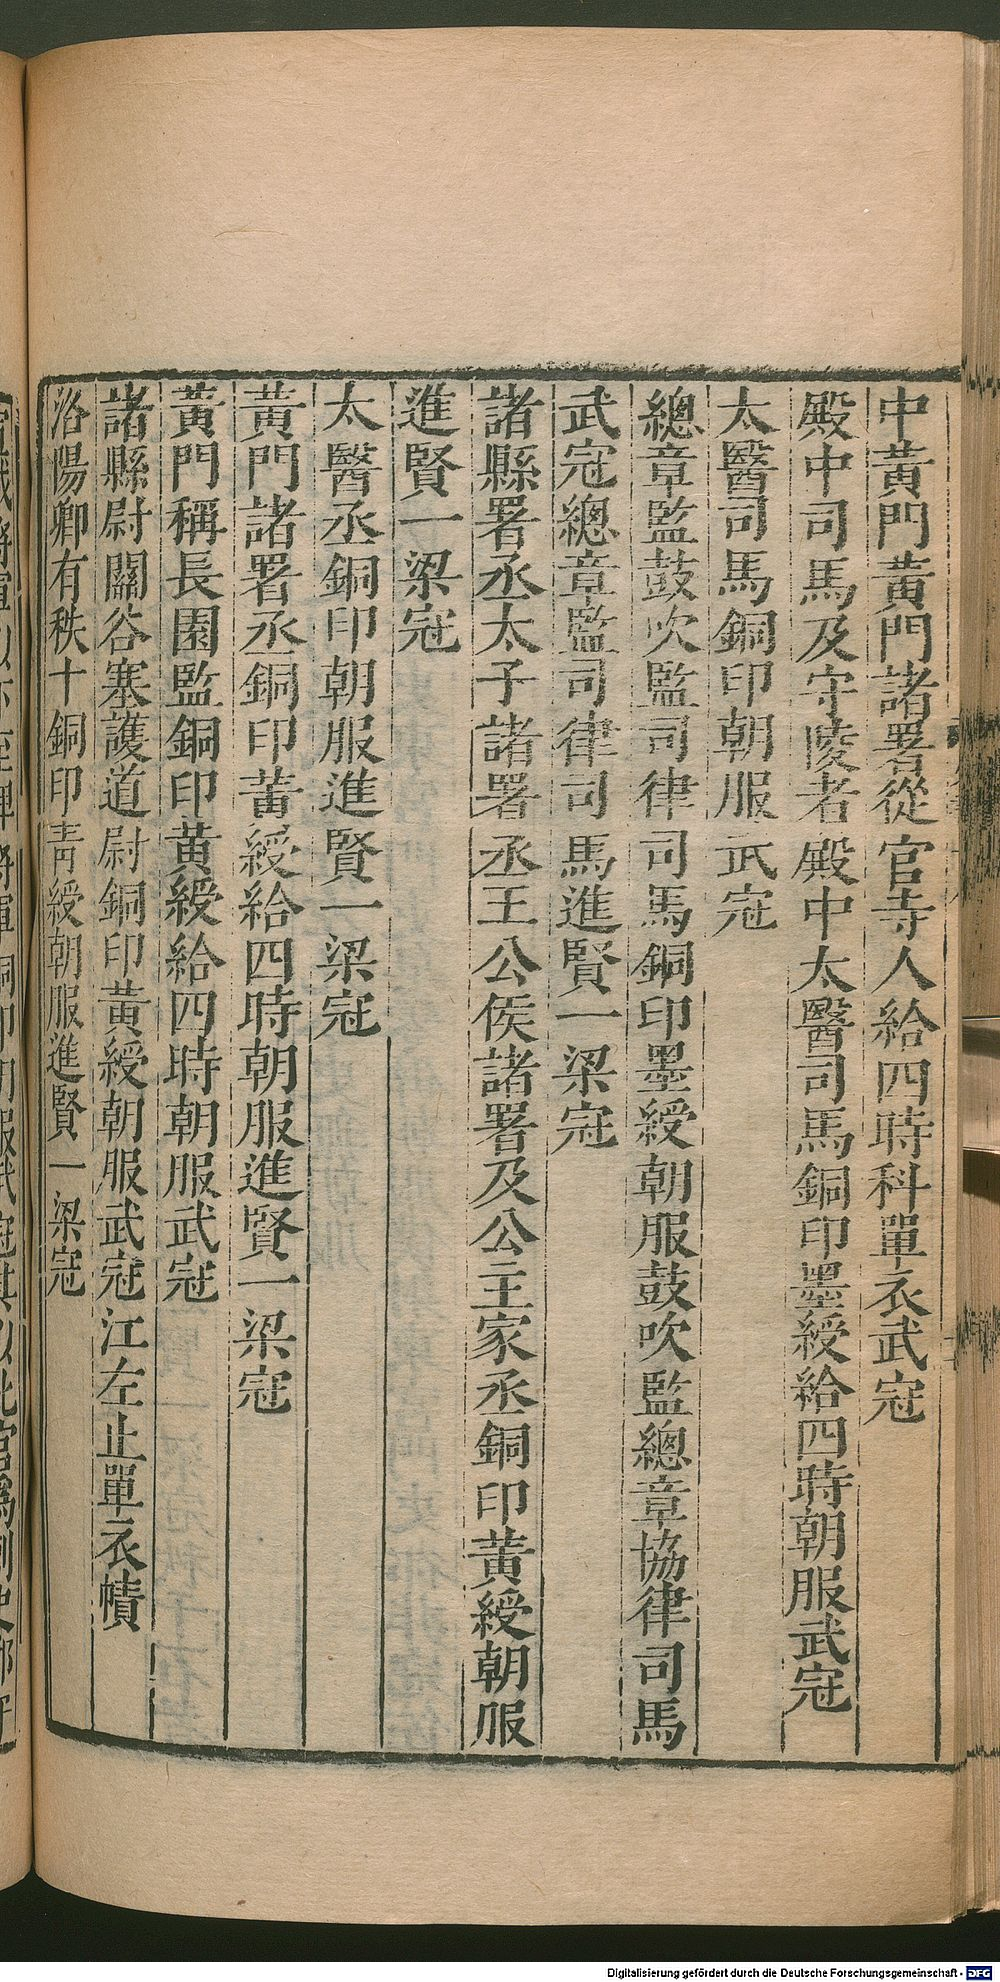 中黃門黃門諸署從官寺人給四時科單衣武冠
殿中司馬及守陵者殿中太醫司馬銅印墨綬給四時朝服武冠
太醫司馬銅印朝服武冠
總章監鼓吹監司律司馬銅印墨綬朝服鼓吹監總章協律司馬
武冠總章監司律司馬進賢一梁冠
諸縣署丞太子諸署丞王公侯諸署及公主家丞銅印黃綬朝服
進賢一梁冠
太醫丞銅印朝服進賢一梁冠
黃門諸署丞銅印黃綬給四時朝服進賢一梁冠
黃門稱長園監銅印黃綬給四時朝服武冠
諸縣尉關谷塞護道尉銅印黃綬朝服武冠江左止單衣幘
洛陽卿有秩十銅印靑綬朝服進賢一梁冠
Digitalisierung gefördert durch die Deutsche Forschungsgemeinschaft - DFG